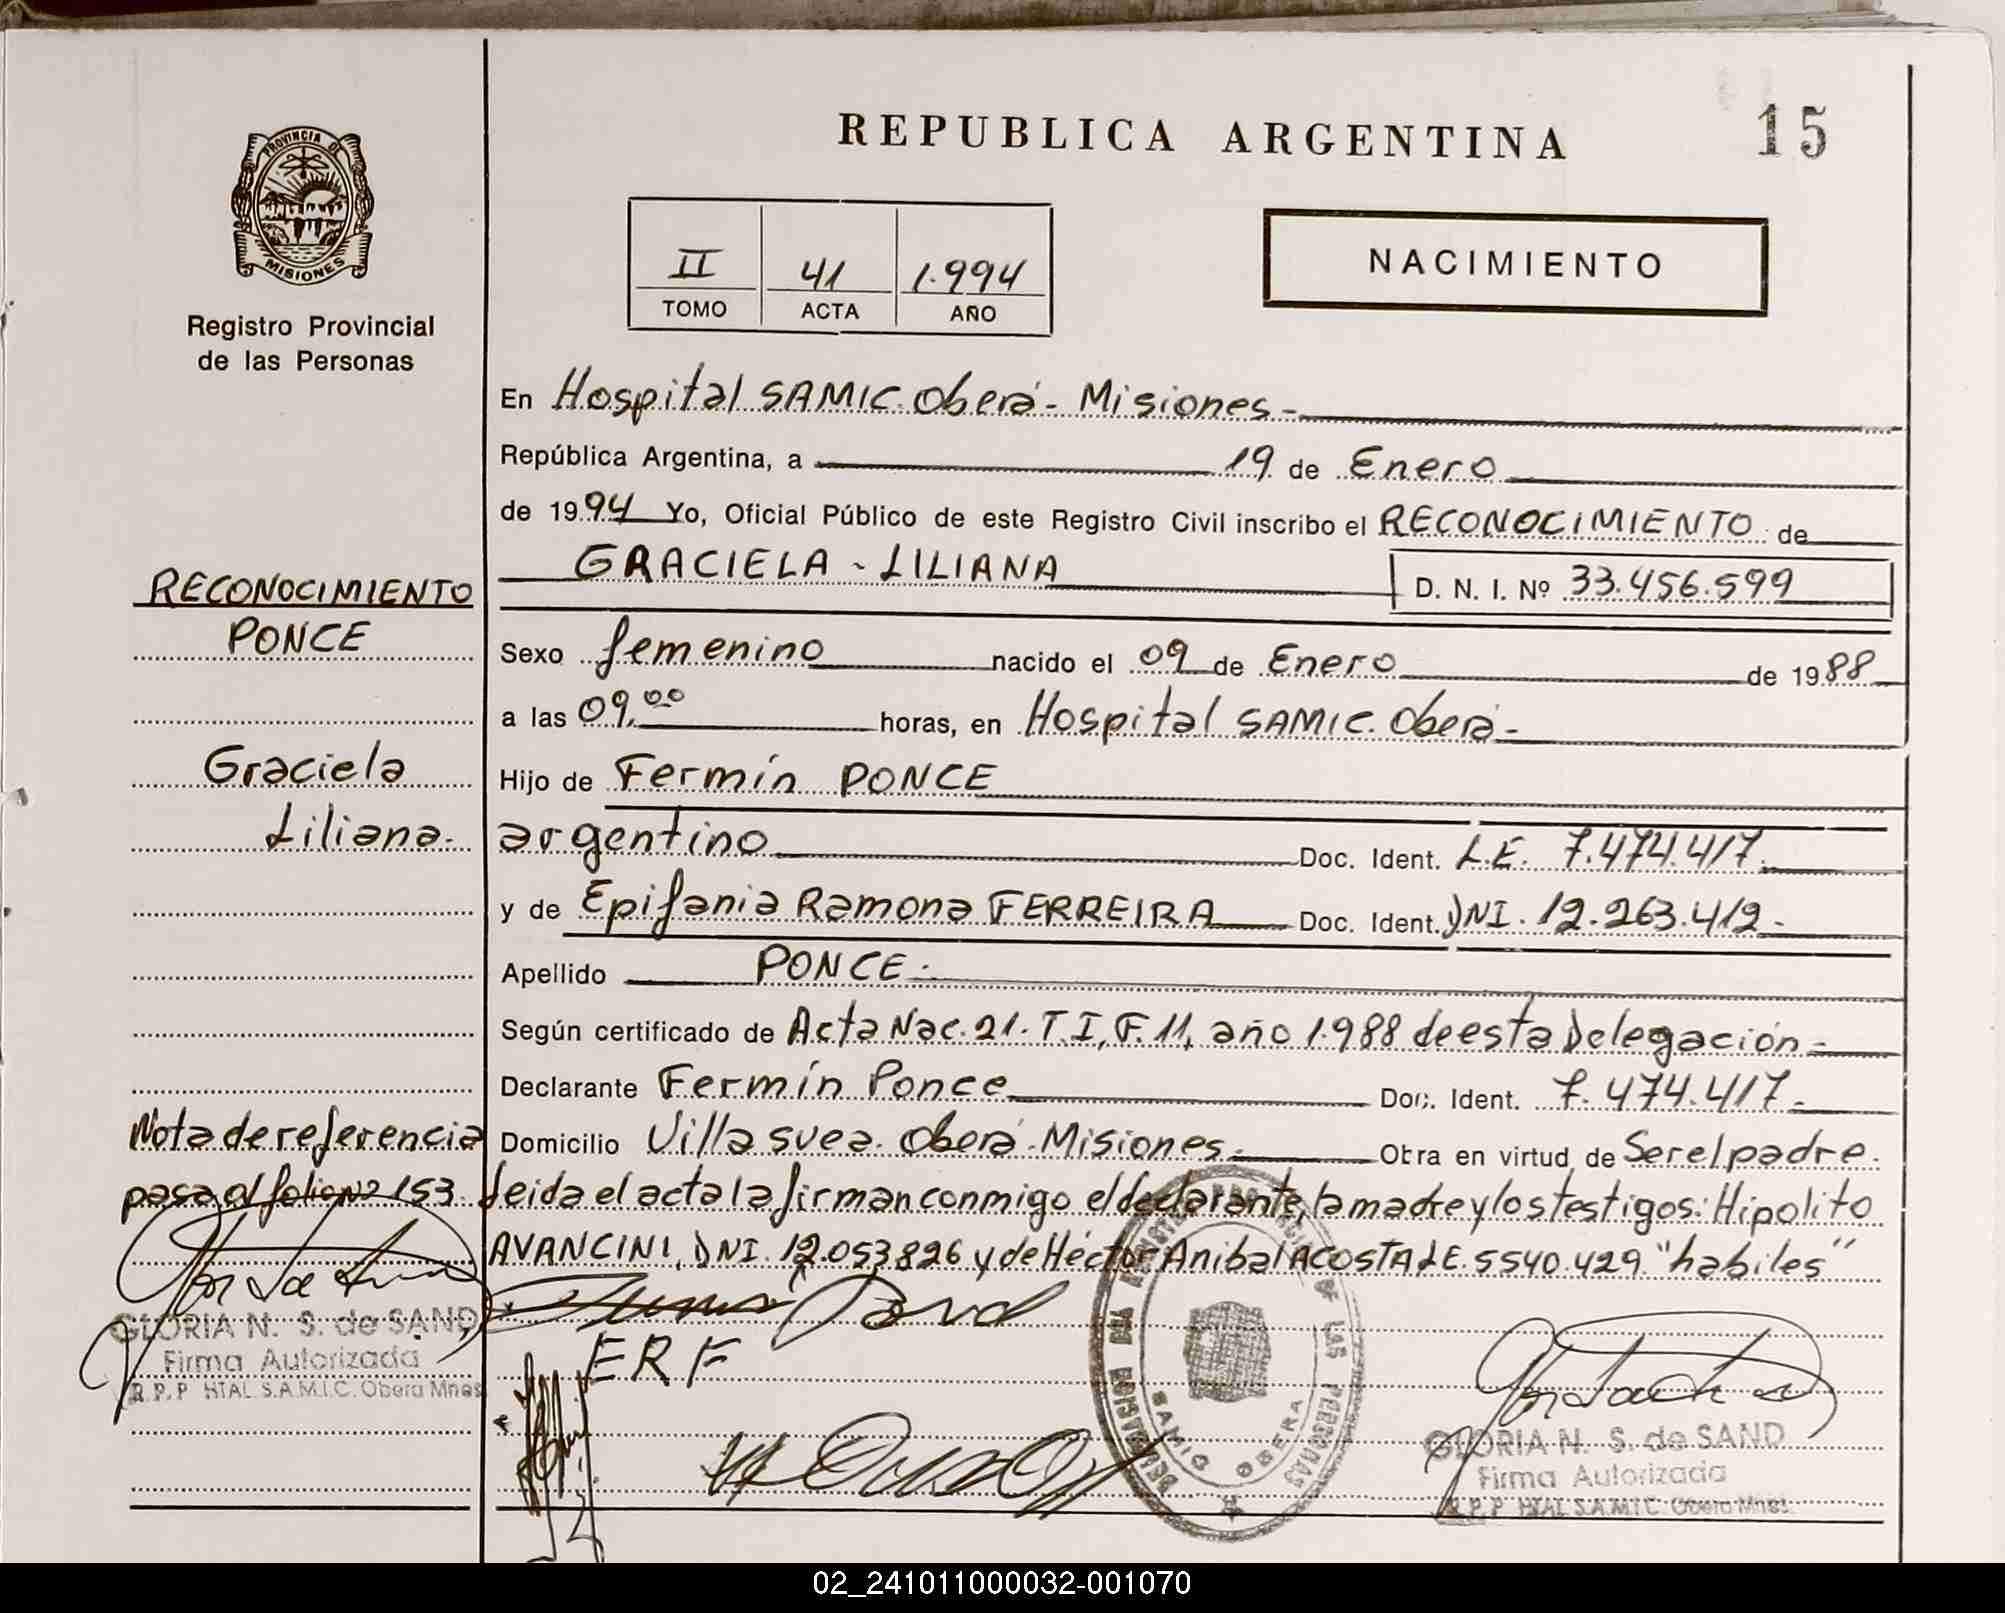 REPUBLICA ARGENTINA
15
PROVINCIA DE
MISIONES
Registro Provincial
de las Personas
II 41 1.994
TOMO ACTA AÑO
NACIMIENTO
En Hospital SAMIC. Oberá - Misiones -
República Argentina, a 19 de Enero
de 1994 Yo, Oficial Público de este Registro Civil inscribo el RECONOCIMIENTO de
GRACIELA - LILIANA D. N. I. Nº 33.456.599
Sexo femenino nacido el 09 de Enero de 1988
a las 09,00 horas, en Hospital SAMIC. Oberá -
Hijo de Fermín PONCE
argentino Doc. Ident. L.E. 7.474.417.
y de Epifania Ramona FERREIRA Doc. Ident. DNI. 12.263.412 -
Apellido PONCE.
Según certificado de Acta Nac. 21. T.I, F. 11, año 1.988 de esta Delegación -
Declarante Fermín Ponce Doc. Ident. 7.474.417.
Domicilio Villa svea. Oberá - Misiones. Obra en virtud de Ser el padre.
Leida el acta la firman conmigo el declarante, la madre y los testigos: Hipolito
AVANCINI, DNI. 12.053.826 y de Héctor Anibal ACOSTA L.E. 5540.429 "habiles"
RECONOCIMIENTO
PONCE
Graciela
Liliana.
Nota de referencia
pasa al folio Nº 153.
GLORIA N. S. de SAND
Firma Autorizada
R.P.P HTAL S.A.M.I.C. Obera Mnes
E R F
SAMIC OBERA
LAS PERSONAS
GLORIA N. S. de SAND
Firma Autorizada
R.P.P HTAL S.A.M.I.C. Obera Mnes.
02_241011000032-001070